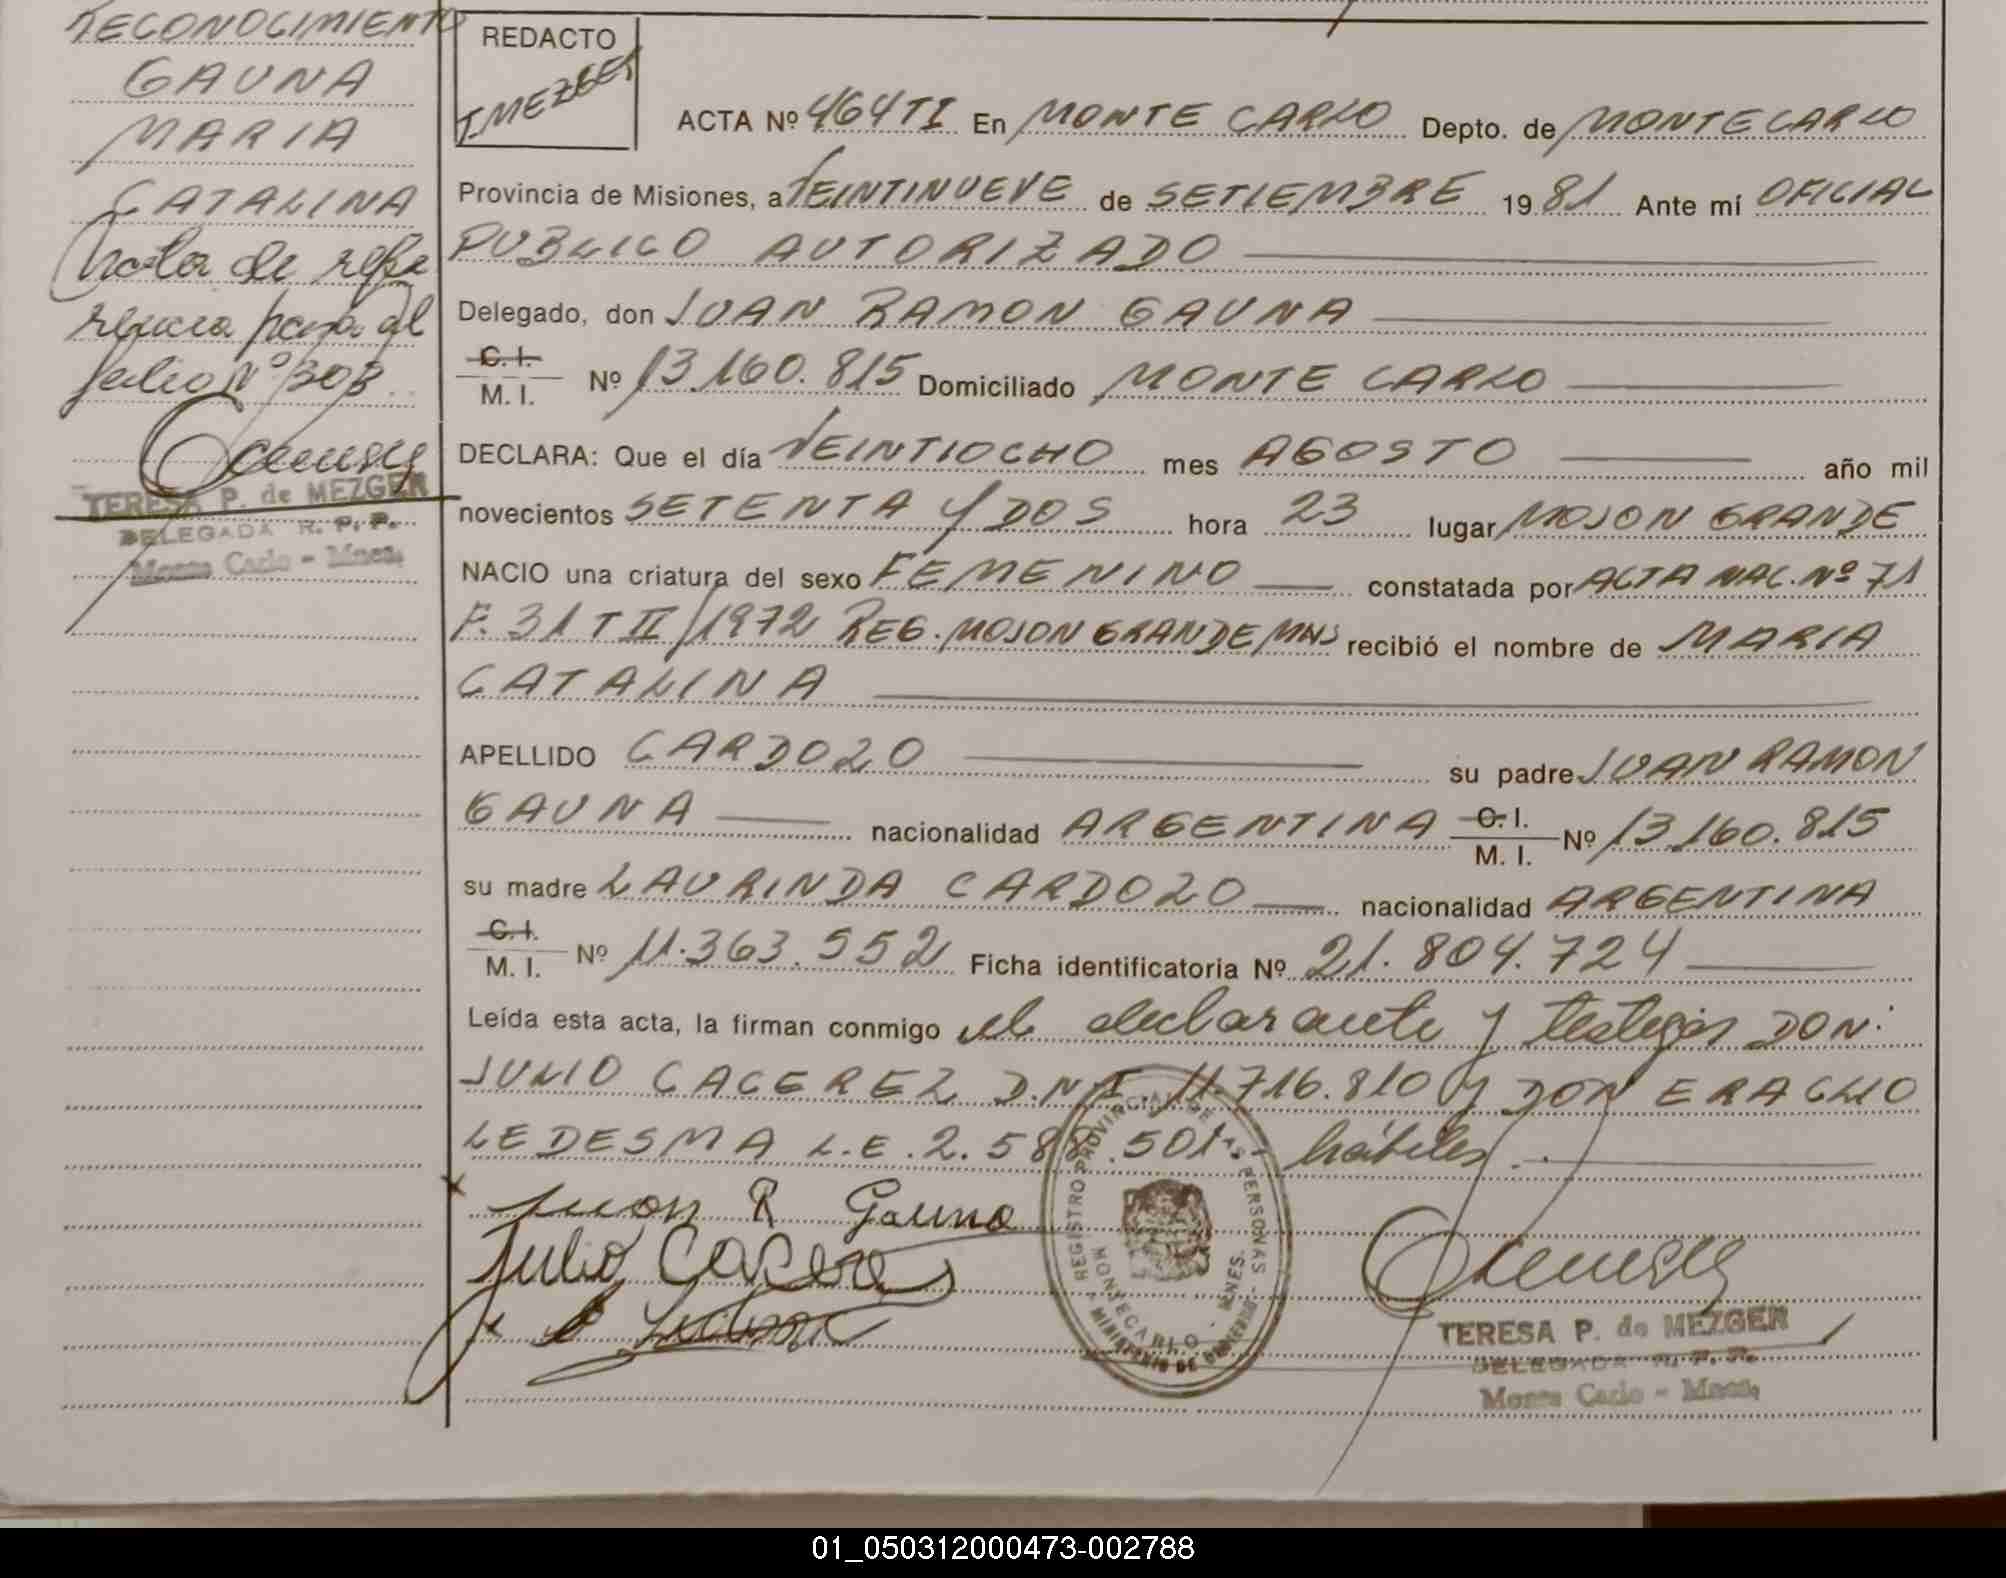 RECONOCIMIENTO
GAUNA
MARIA
CATALINA
Nota de refe
rencia pasa al
folio Nº 303
TERESA P. de MEZGER
DELEGADA R. P. P.
Monte Carlo - Mnes.
REDACTO
T. MEZGER
ACTA Nº 464 TI En MONTE CARLO Depto. de MONTECARLO
Provincia de Misiones, a VEINTINUEVE de SETIEMBRE 1981 Ante mí OFICIAL
PUBLICO AUTORIZADO
Delegado, don JUAN RAMON GAUNA
C. I.
M. I. Nº 13.160.815 Domiciliado MONTE CARLO
DECLARA: Que el día VEINTIOCHO mes AGOSTO año mil
novecientos SETENTA Y DOS hora 23 lugar MOJON GRANDE
NACIO una criatura del sexo FEMENINO constatada por ACTA NAC. Nº 71
F. 31 T II/1972 REG. MOJON GRANDE MNS recibió el nombre de MARIA
CATALINA
APELLIDO CARDOZO su padre JUAN RAMON
GAUNA nacionalidad ARGENTINA C. I. M. I. Nº 13.160.815
su madre LAURINDA CARDOZO nacionalidad ARGENTINA
C. I.
M. I. Nº 11.363.552 Ficha identificatoria Nº 21.804.724
Leída esta acta, la firman conmigo el declarante y testigos DON:
JULIO CACEREZ D.N.I. 11.716.810 y DON ERACLIO
LEDESMA L.E. 2.588.501 - hábiles.
Juan R Gauna
Julio Caceres
E Ledesma
REGISTRO PROVINCIAL DE LAS PERSONAS
MONTECARLO - MNES.
MINISTERIO DE GOBIERNO
TERESA P. de MEZGER
DELEGADA R. P. P.
Monte Carlo - Mnes.
01_050312000473-002788